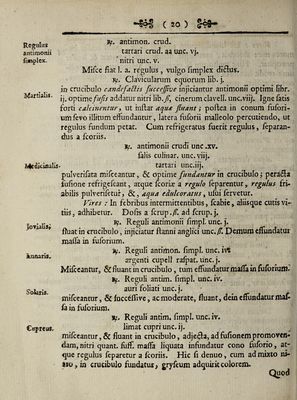 ( 20 )
Regulus antimonii simplex.
℞. antimon. crud.
tartari crud. aa unc. vj.
nitri unc. v.
Misce fiat l. a. regulus, vulgo simplex dictus.
℞. Clavicularum equorum lib. j.
Martialis.
in crucibulo candefactis successive injiciantur antimonii optimi libr.
ij. optime fusis addatur nitri lib. ß, cinerum clavell. unc. viij. Igne satis
forti calcinentur, ut instar aquæ fluant; postea in conum fusori-
um sevo illitum effundantur, latera fusorii malleolo percutiendo, ut
regulus fundum petat. Cum refrigeratus fuerit regulus, separan-
dus a scoriis.
℞. antimonii crudi unc. xv.
salis culinar. unc. viij.
tartari unc. iij.
Medicinalis.
pulverisata misceantur, & optime fundantur in crucibulo; peracta
fusione refrigescant, atque scoriæ a regulo separentur, regulus fri-
abilis pulverisetur, &, aqua edulcoratus, usui servetur.
Vires : In febribus intermittentibus, scabie, aliisque cutis vi-
tiis, adhibetur. Dosis a scrup. ß. ad scrup. j.
℞. Reguli antimonii simpl. unc. j.
Jovialis.
fluat in crucibulo, injiciatur stanni anglici unc. ß. Demum effundatur
massa in fusorium.
℞. Reguli antimon. simpl. unc. iv.
argenti cupell raspat. unc. j.
Lunaris.
Misceantur, & fluant in crucibulo, tum effundatur massa in fusorium.
℞. Reguli antim. simpl. unc. iv.
auri foliati unc. j.
Solaris.
misceantur, & successive, ac moderate, fluant, dein effundatur mas-
sa in fusorium.
℞. Reguli antim. simpl. unc. iv.
limat cupri unc. ij.
Cupreus.
misceantur, & fluant in crucibulo, adjecta, ad fusionem promoven-
dam, nitri quant. suff. massa liquata infundatur cono fusorio, at-
que regulus separetur a scoriis. Hic si denuo, cum ad mixto ni-
tro, in crucibulo fundatur, gryseum adquirit colorem.
Quod